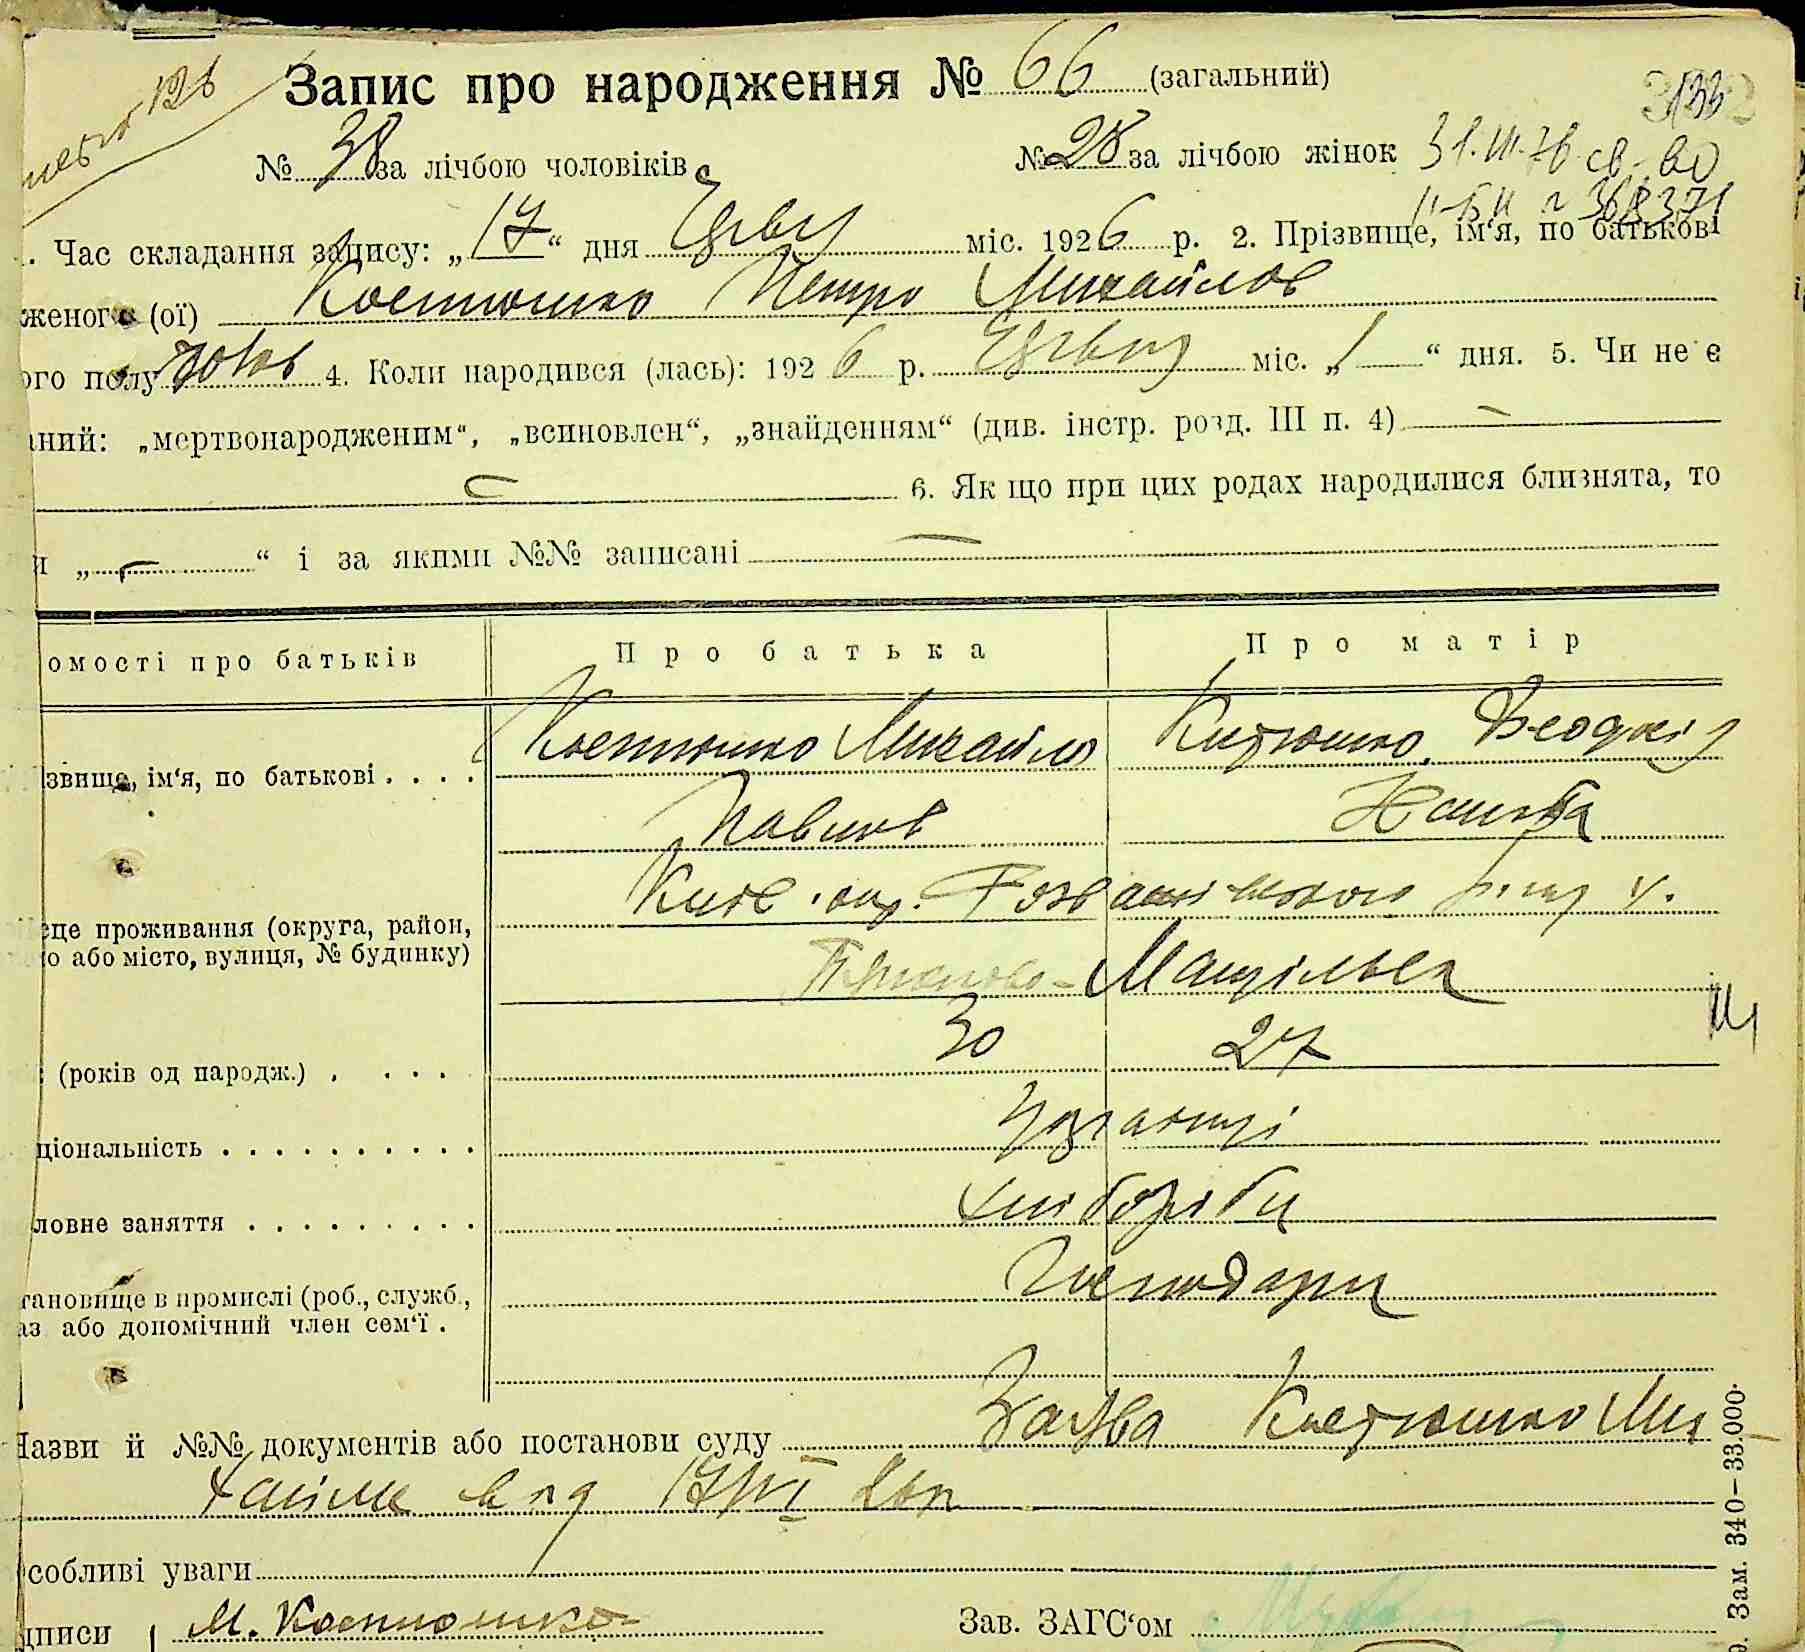 126
Запис про народження № 66 (загальний)
№ 38 за лічбою чоловіків № 28 за лічбою жінок 31.III.76 св-во
II-БК № 368371
. Час складання запису: „17“ дня Червн міс. 1926 р. 2. Прізвище, ім‘я, по батькові
женого (ої) Костюшко Петро Михайлов
ого полу чолов 4. Коли народився (лась): 1926 р. Червня міс. „1“ дня. 5. Чи не є
аний: „мертвонародженим“, „всиновлен“, „знайденням“ (див. інстр. розд. III п. 4) —
6. Як що при цих родах народилися близнята, то
и „—“ і за якими №№ записані —
омості про батьків Про батька Про матір
Костюшко Михайло Костюшко Феодосія
звище, ім‘я, по батькові . . . .
Павлов
Київ. окр.
це проживання (округа, район,
о або місто, вулиця, № будинку)
Мацільськ
30 27
(років од народж.) . . . .
ціональність . . . . . . . . . . Українці
ловне заняття . . . . . . . . . хлібороби
Господарі
тановище в промислі (роб., служб.,
аз або допомічний член сем‘ї .
Назви й №№ документів або постанови суду Заява Костюшко Ми
хайла від 17/VI 26р
собливі уваги
дписи М. Костюшко Зав. ЗАГС‘ом
Зам. 340—33.000.